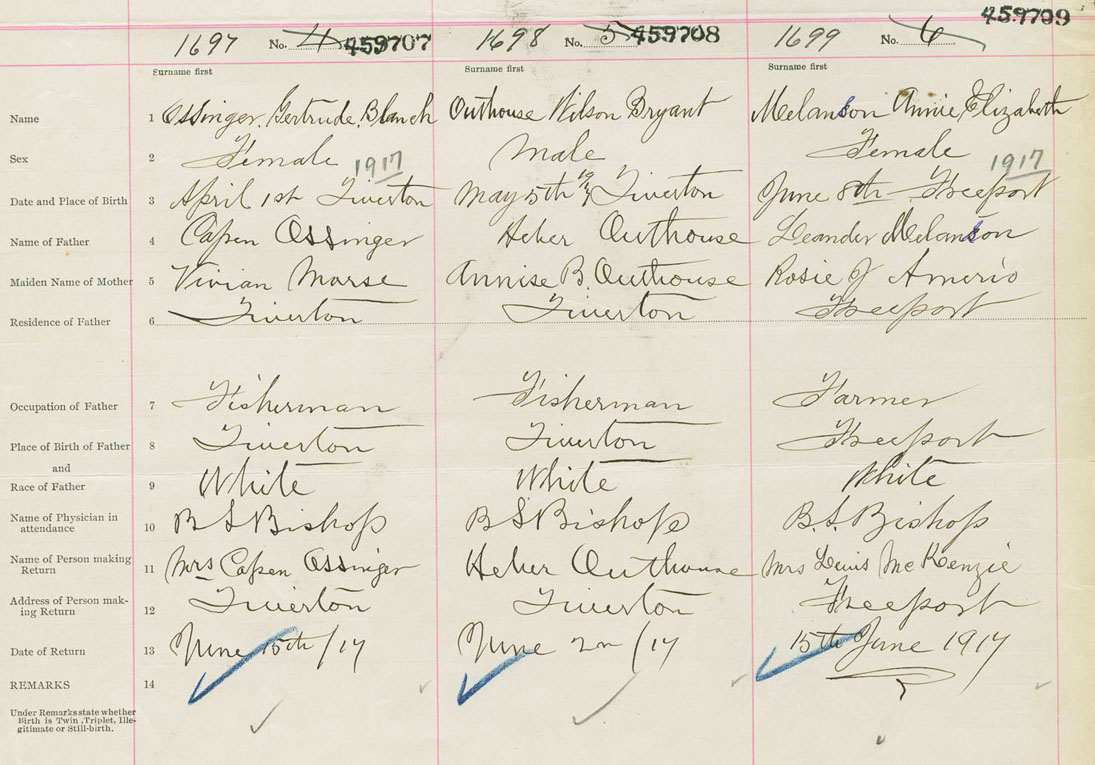 459709
1697 No. 4 459707 1698 No. 5 459708 1699 No. 6
Surname first Surname first Surname first
Name 1 Ossinger, Gertrude Blanch Outhouse Wilson Bryant Melanson Annie Elizabeth
Sex 2 Female Male Female
1917 1917
Date and Place of Birth 3 April 1st Tiverton May 5th 1917 Tiverton June 8th Freeport
Name of Father 4 Capen Ossinger Heber Outhouse Leander Melanson
Maiden Name of Mother 5 Vivian Marse Annise B. Outhouse Rosie J Amerio
Residence of Father 6 Tiverton Tiverton Freeport
Occupation of Father 7 Fisherman Fisherman Farmer
Place of Birth of Father 8 Tiverton Tiverton Freeport
and
Race of Father 9 White White White
Name of Physician in
attendance 10 B S Bishop B S Bishop B. S. Bishop
Name of Person making
Return 11 Mrs Capen Ossinger Heber Outhouse Mrs Lewis McKenzie
Address of Person mak-
ing Return 12 Tiverton Tiverton Freeport
Date of Return 13 June 15th/17 June 2n/17 15th June 1917
REMARKS 14
Under Remarks state whether
Birth is Twin, Triplet, Ille-
gitimate or Still-birth.